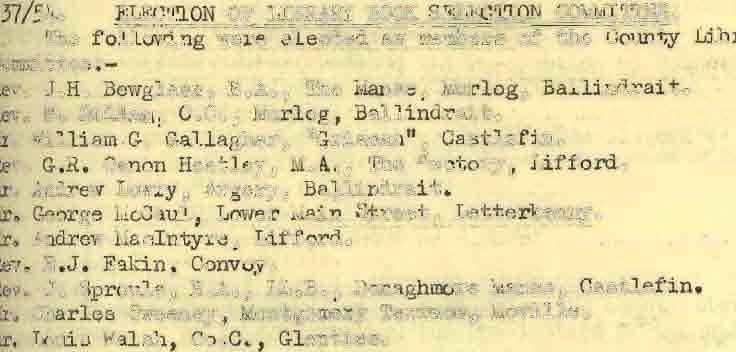 37/54. ELECTION OF LIBRARY BOOK SELECTION COMMITTEE.
The following were elected as members of the County Libr
ommittee.-
ev. J.H. Bewglass, B.A., The Manse, Murlog, Ballindrait.
ev. C.C., Murlog, Ballindrait.
r. William G. Gallagher, "Grianan", Castlefin.
ev. G.R. Canon Heatley, M.A., The Rectory, Lifford.
r. Andrew Lowry, Argery, Ballindrait.
r. George McCaul, Lower Main Street, Letterkenny.
r. Andrew MacIntyre, Lifford.
ev. R.J. Eakin, Convoy.
ev. J. Sproule, B.A., LL.B., Donaghmore Manse, Castlefin.
r. Charles Sweeney, Montgomery Terrace, Moville.
r. Louis Walsh, Co.C., Glenties.